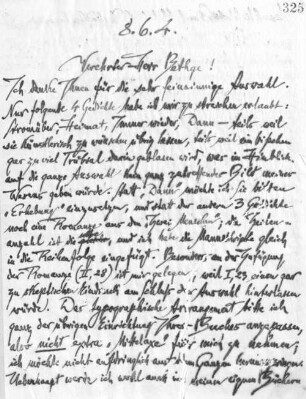 325
8.6.4.
Verehrter Herr Bethge!
Ich danke Ihnen für die sehr feinsinnige Auswahl.
Nur folgende 4 Gedichte habe ich mir zu streichen erlaubt:
Stromüber, Heimat, Immer wieder, Dann – teils weil
sie künstlerisch zu wünschen übrig lassen, teils weil ein bischen
gar zu viel Trübsal darin geblasen wird, was im Hinblick
auf die ganze Auswahl kein ganz zutreffendes Bild meines
Wesens geben würde. Statt „Dann" möchte ich Sie bitten
„Erhebung" einzusetzen, und statt der andern 3 Gedichte
noch eine Romanze aus den „Zwei Menschen"; die Zeilen-
anzahl ist die und ich habe die Manuskripte gleich
in die Reihenfolge eingefügt. Besonders an der Einfügung
der Romanze (II, 28) ist mir gelegen, weil I, einen gar
zu skeptischen Eindruck am Schluß der Auswahl hinterlassen
würde. Das typographische Arrangement bitte ich
ganz der übrigen Einrichtung Ihres Buches anzupassen,
also nicht extra „Mittelaxe" für mich zu nehmen;
ich möchte nicht aufdringlich aus dem Ganzen
Ueberhaupt werde ich wohl auch in meinen eignen Büchern